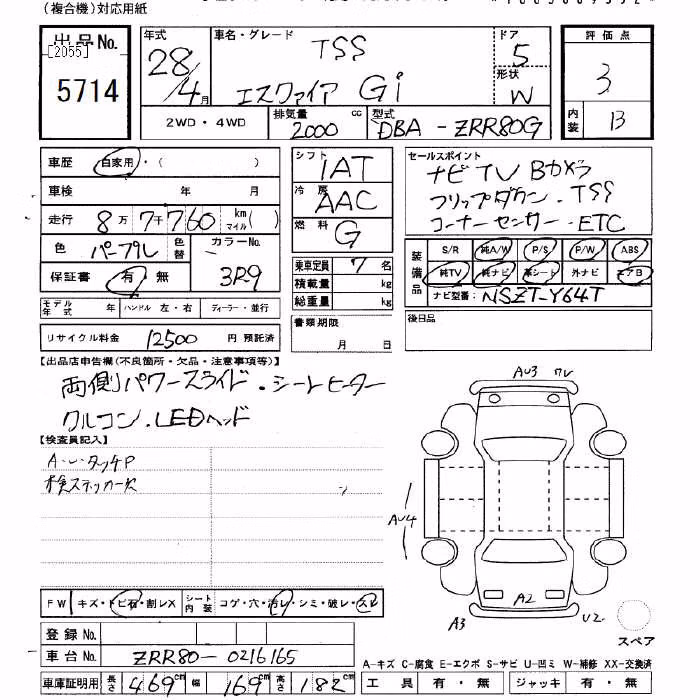 (複合機)対応用紙
出品No.
[2055]
5714
年式
28/4月
車名・グレード
TSS
エスクァイア Gi
ドア
5
形状
W
評価点
3
内装
B
2WD・4WD
排気量
2000 cc
型式
DBA-ZRR80G
車歴 自家用・( )
車検 年 月
走行 8万7千760 km マイル( )
色 パープル 色替 カラーNo. 3R9
保証書 有・無
シフト IAT
冷房 AAC
燃料 G
乗車定員 7名
積載量 kg
総重量 kg
セールスポイント
ナビ TV Bカメラ
フリップダウン・TSS
コーナーセンサー・ETC
装備品
S/R 純A/W P/S P/W ABS
純TV 純ナビ 革シート 外ナビ エアB
ナビ型番: NSZT-Y64T
モデル年式 年 ハンドル 左・右 ディーラー・並行
リサイクル料金 12500 円 預託済
書類期限
月 日
後日品
【出品店申告欄(不良箇所・欠品・注意事項等)】
両側パワースライド・シートヒーター
クルコン・LEDヘッド
【検査員記入】
A・U・タッチP
検ステッカー欠
AU3
AU4
A2
A3
U2
スペア
FW キズ・トビ石・割レX シート内装 コゲ・穴・汚レ・シミ・破レ・スレ
登録No.
車台No. ZRR80-0216165
車庫証明用 長さ 469cm 幅 169cm 高さ 182cm
A-キズ C-腐食 E-エクボ S-サビ U-凹ミ W-補修 XX-交換済
工具 有・無 ジャッキ 有・無